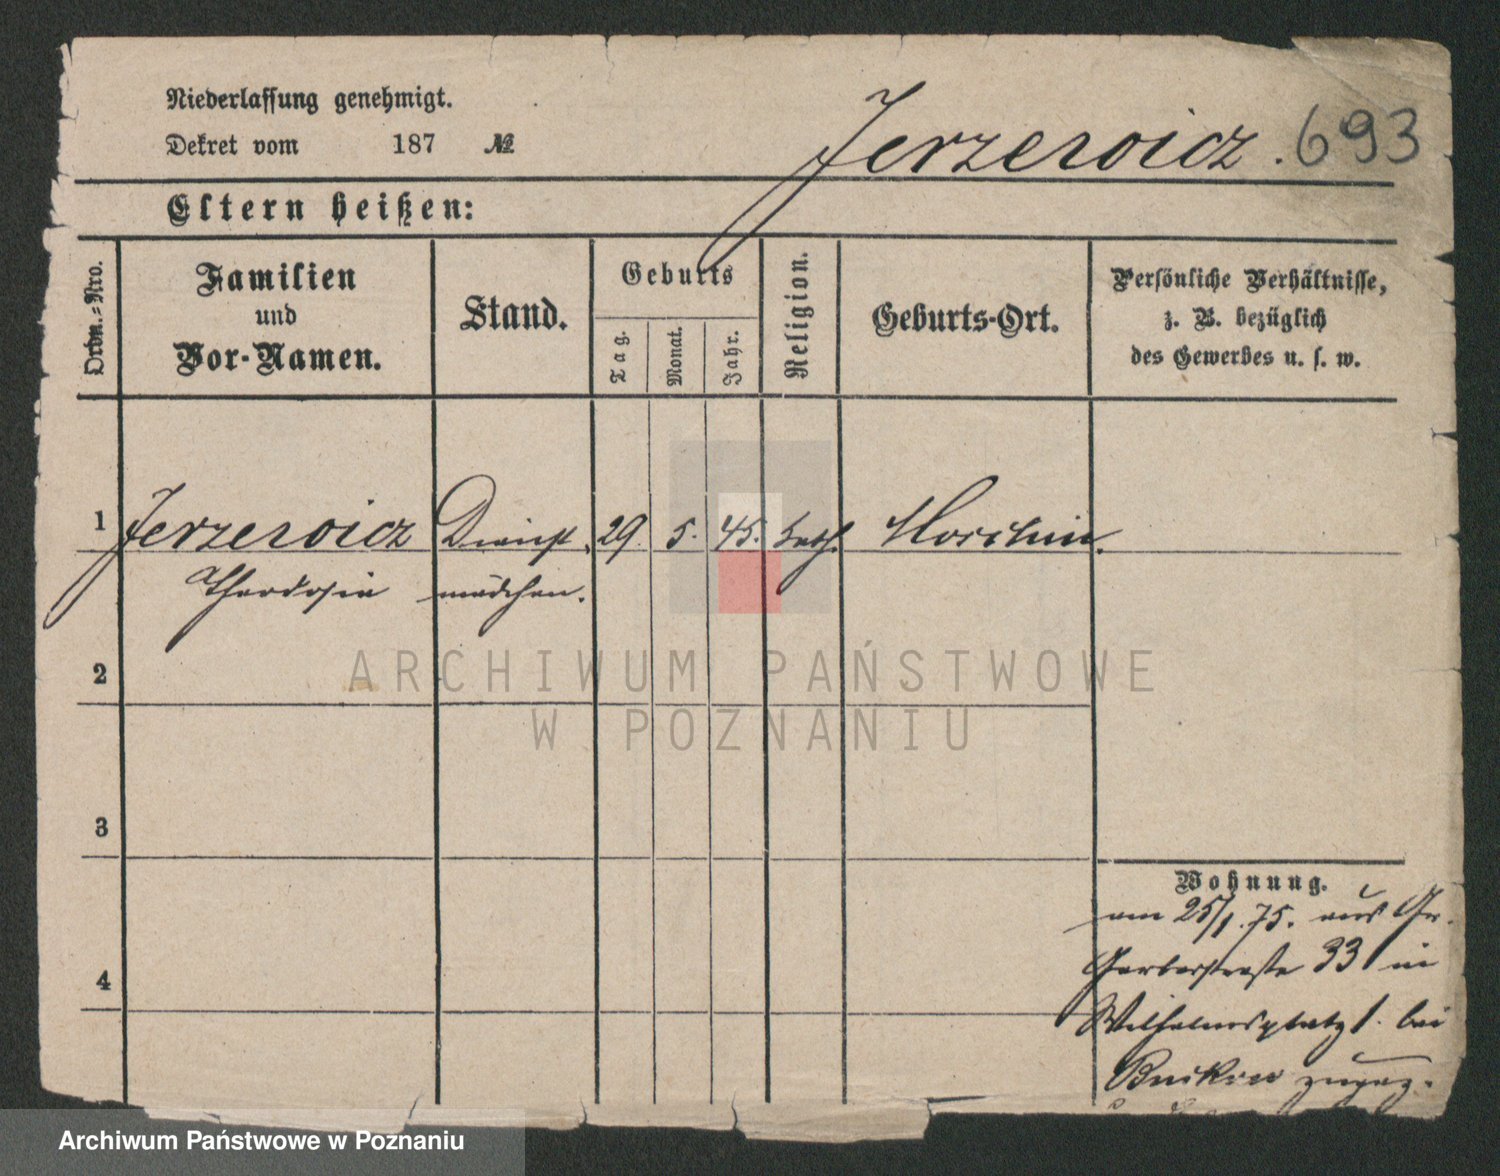 Niederlassung genehmigt.
Dekret vom 187 №
Jerzewicz . 693
Eltern heißen:
Ordn.-Nro.
Familien
und
Vor-Namen.
Stand.
Geburts
Tag.
Monat.
Jahr.
Religion.
Geburts-Ort.
Persönliche Verhältnisse,
z. B. bezüglich
des Gewerbes u. s. w.
1 Jerzewicz Dienst 29. 5. 45. kath. Morschin.
Theodosia mädchen.
2
3
4
Wohnung.
am 25/1.75. aus Gr.
Gerberstraße 33 in
Wilhelmsplatz 1. bei
zugez.
ARCHIWUM PAŃSTWOWE
W POZNANIU
Archiwum Państwowe w Poznaniu